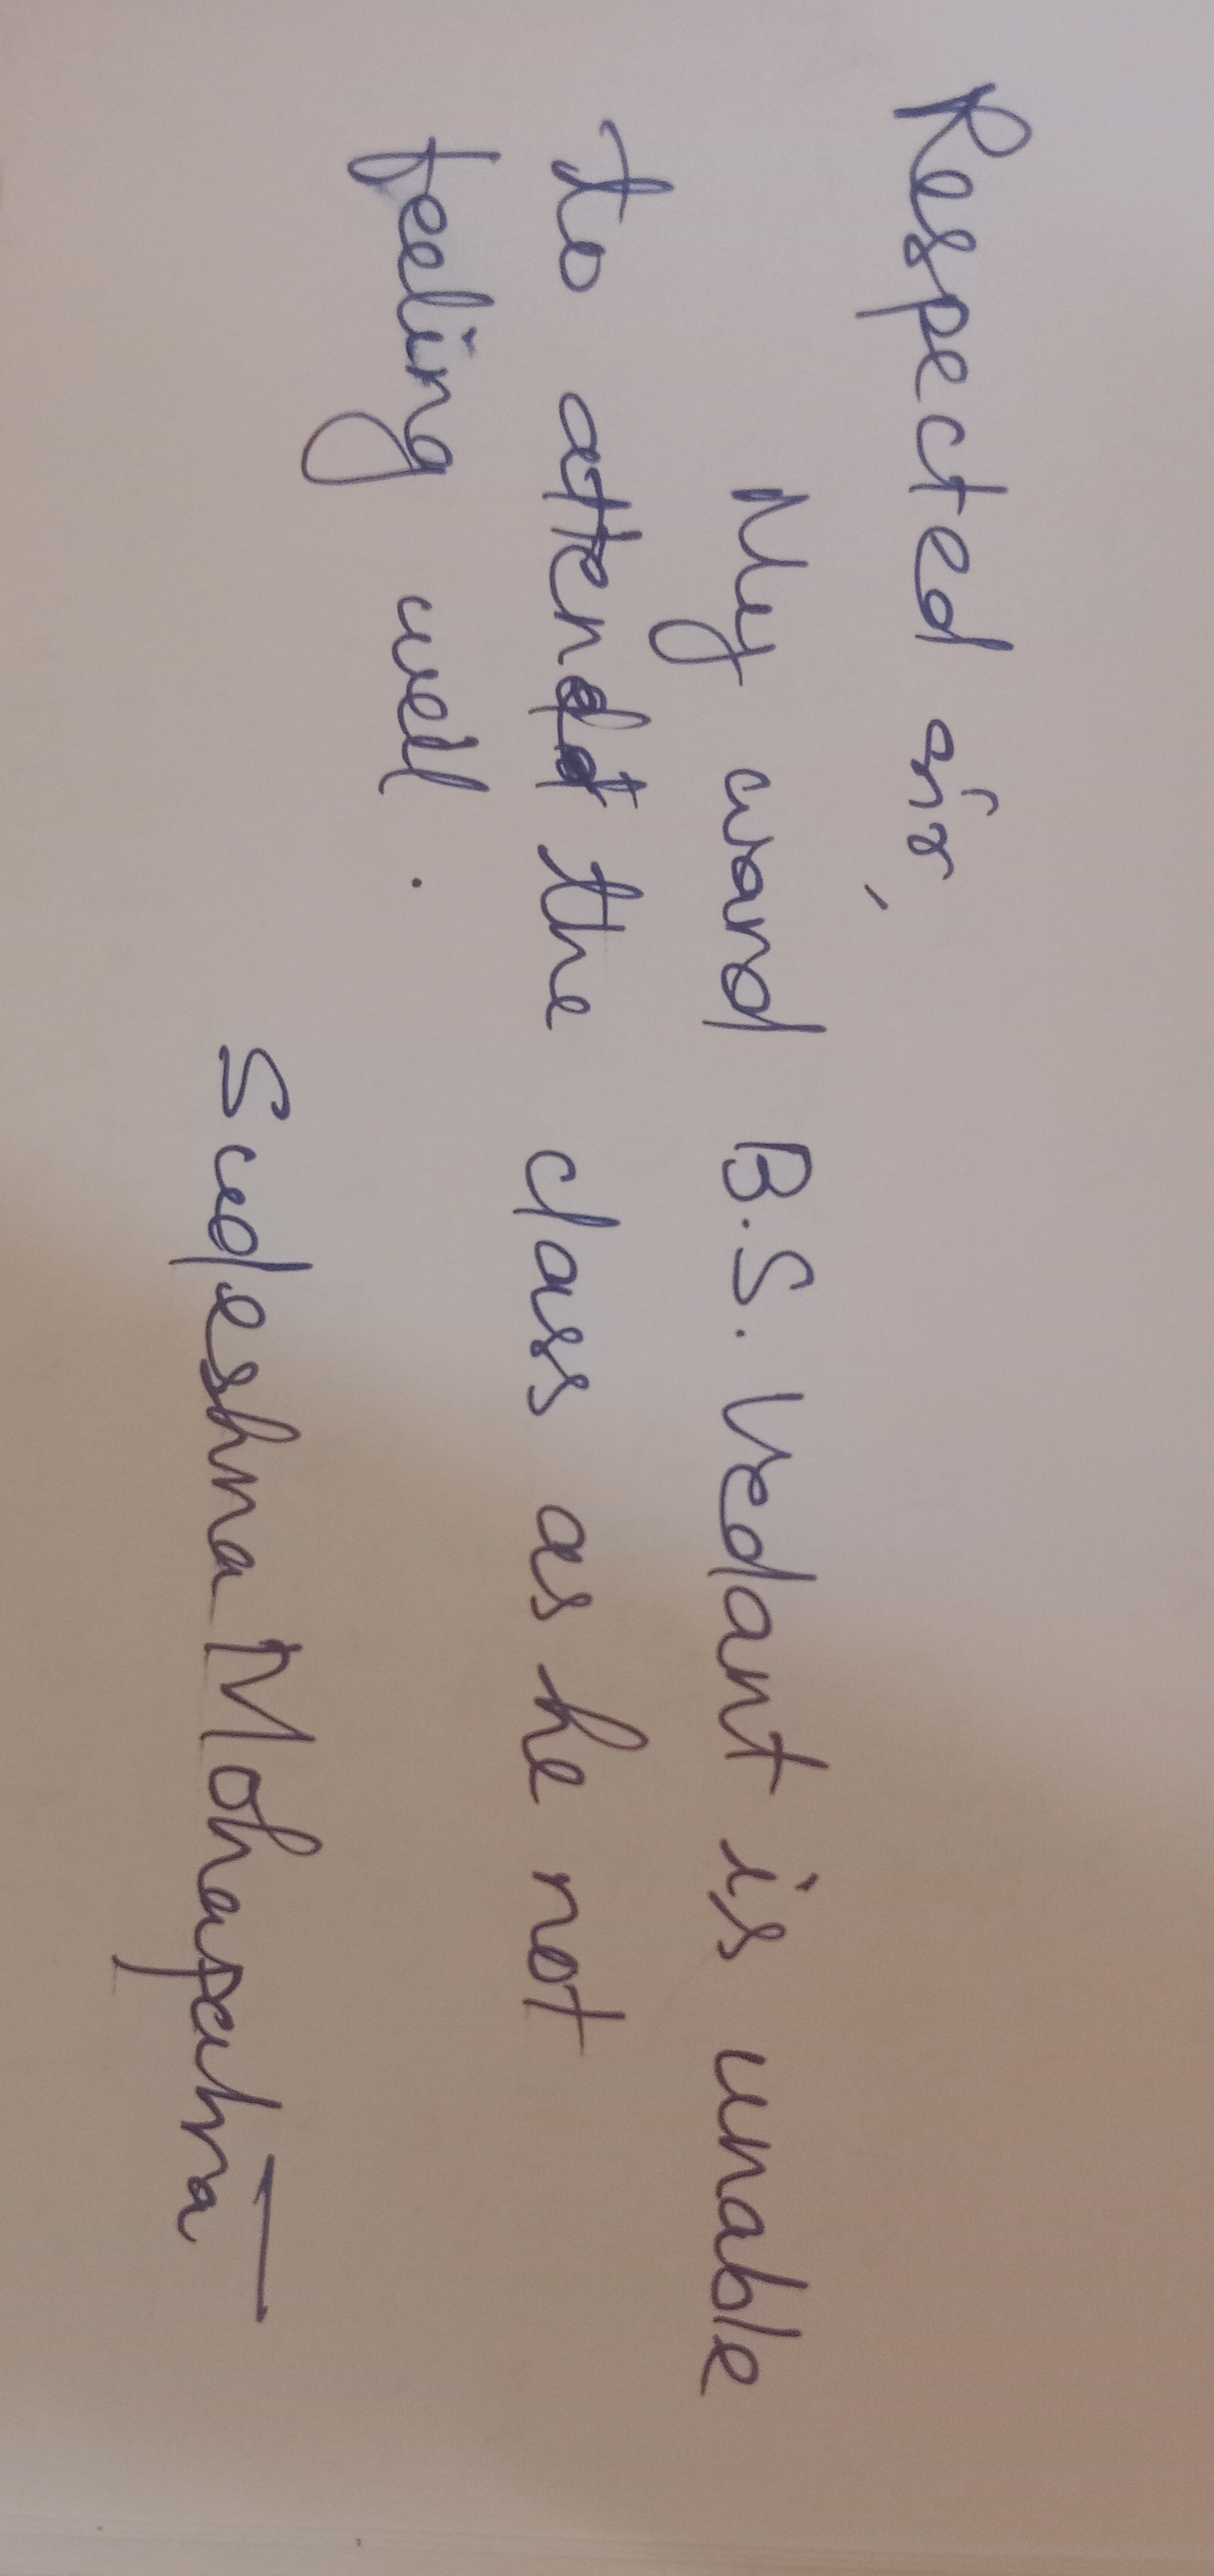 Respected sir,
My ward B.S. Vedant is unable
to attend the class as he not
feeling well.
Sudeshna Mohapatra